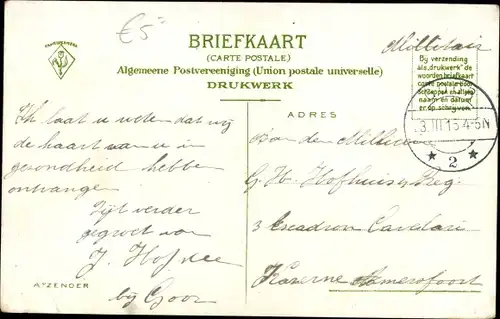 €5=
BRIEFKAART
(CARTE POSTALE)
Algemeene Postvereeniging (Union postale universelle)
DRUKWERK
Militair
Bij verzending
als „drukwerk" de
woorden briefkaart
carte postale door-
schrappen en alleen
naam en datum
er op schrijven
3.III.15 4-5N
* 2 *
Ik laat u weten dat wij
de kaart van u in
gezondheid hebben
ontvangen
Zijt verder
gegroet van
J. Hof
bij Goor
AFZENDER
ADRES
Aan den Militair
G. H. Hofhuis Reg.
3 Escadron Cavelari
Kazerne Amersfoort